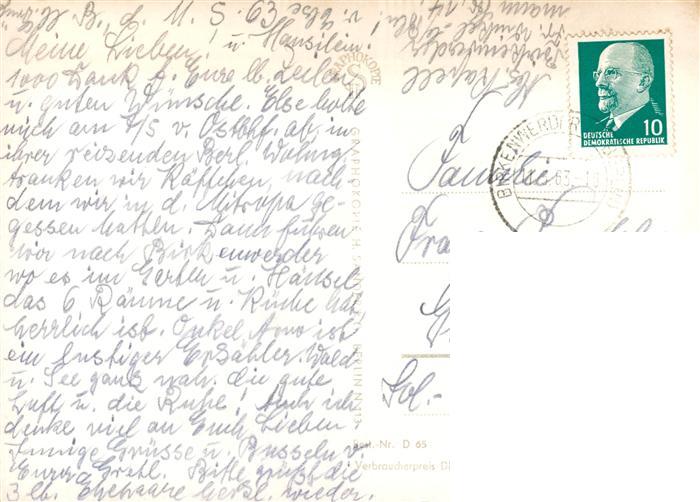 B., d. 11. 5. 63
Meine Lieben! u. Hansilein!
1000 Dank f. Eure lb. Zeilen
u. guten Wünsche. Else holte
mich am 7/5 v. Ostbhf. ab, in
ihrer reizenden Berl. Wohng.
tranken wir Käffchen, nach
dem wir in d. Mitropa ge-
gessen hatten. Dann fuhren
wir nach Birkenwerder
wo es im Garten u. Häusel
das 6 Räume u. Küche hat
herrlich ist. Onkel Arno ist
ein lustiger Erzähler Wald
u. See ganz nah. die gute
Luft u. die Ruhe! Auch ich
denke viel an Euch Lieben
Innige Grüsse u. Busseln v.
Eurer Gretl. Bitte grüßt die
3 lb. Ehepaare herzl. wieder.
GRAPHOKOPIE H. BERLIN N 113
Familie
Fra
Sol.-
Best.-Nr. D 65
Verbraucherpreis
10
DEUTSCHE
DEMOKRATISCHE REPUBLIK
BIRKENWERDER
63